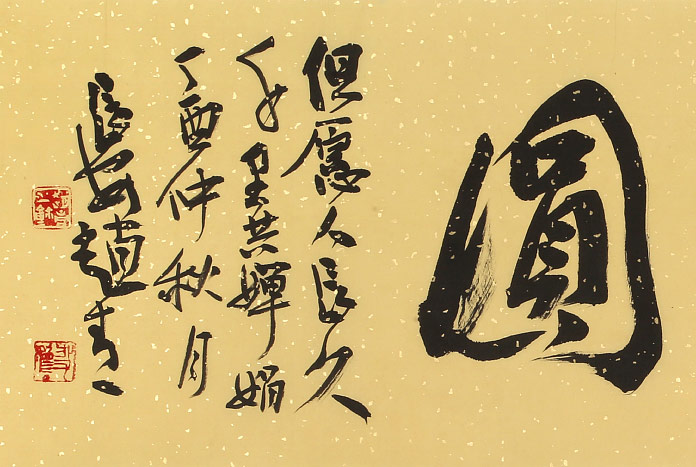 圓
但愿人長久
千里共嬋娟
丁酉仲秋月
長安趙青